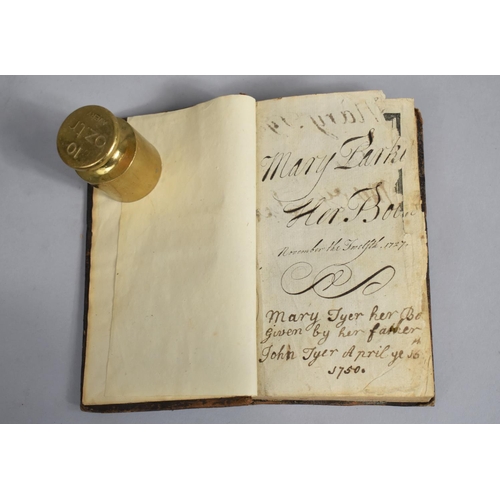 10
OZ TR
Mary Parke
Her Boo
November the Twelfth. 1727.
Mary Tyer her Bo
Given by her father
John Tyer April ye 16
1750.